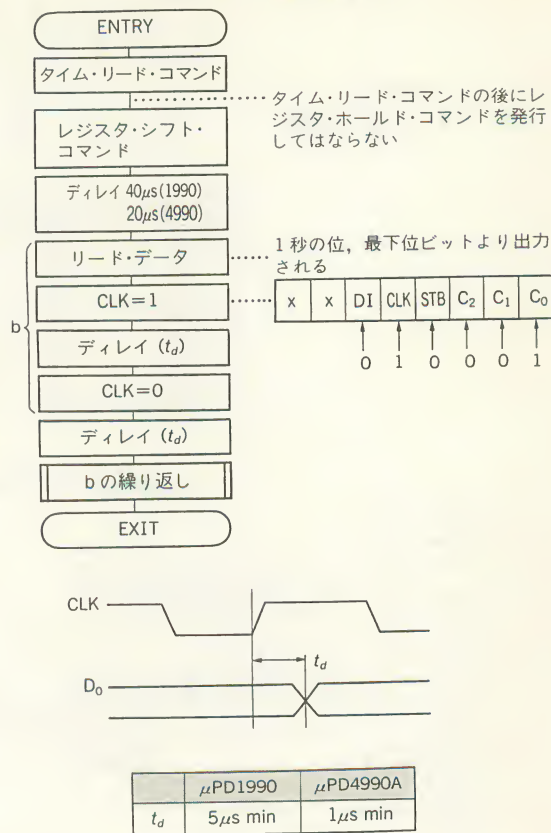 ENTRY
タイム・リード・コマンド
タイム・リード・コマンドの後にレ
ジスタ・ホールド・コマンドを発行
してはならない
レジスタ・シフト・
コマンド
ディレイ 40μs(1990)
20μs(4990)
1秒の位,最下位ビットより出力
される
リード・データ
b
CLK=1
x x DI CLK STB C₂ C₁ C₀
0 1 0 0 0 1
ディレイ (td)
CLK=0
ディレイ (td)
bの繰り返し
EXIT
CLK
td
D₀
μPD1990 μPD4990A
td 5μs min 1μs min